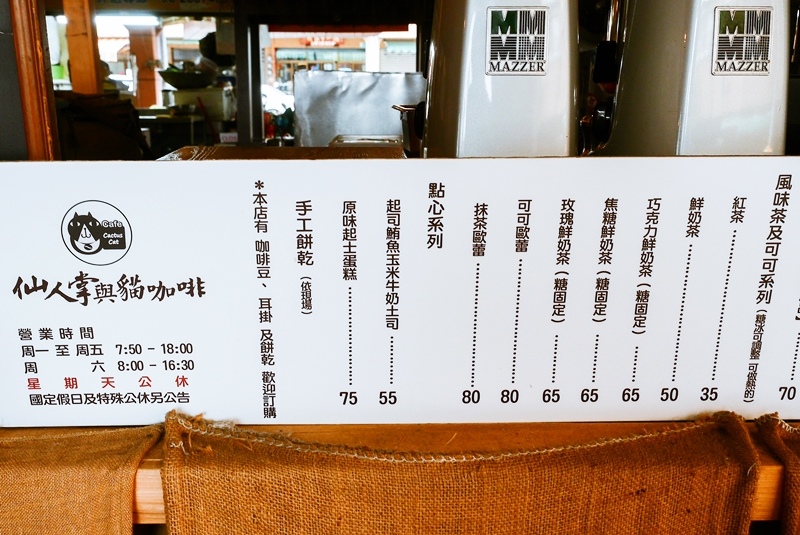 MAZZER
MAZZER
Cafe
Cactus
Cat
仙人掌與貓咖啡
營業時間
周一 至 周五 7:50 - 18:00
周 六 8:00 - 16:30
星期天公休
國定假日及特殊公休另公告
風味茶及可可系列 (糖冰可調整 可做熱的)
70
紅茶 35
鮮奶茶 50
巧克力鮮奶茶 (糖固定) 65
焦糖鮮奶茶 (糖固定) 65
玫瑰鮮奶茶 (糖固定) 65
可可歐蕾 80
抹茶歐蕾 80
點心系列
起司鮪魚玉米牛奶土司 55
原味起士蛋糕 75
手工餅乾 (依現場)
*本店有 咖啡豆、耳掛 及餅乾 歡迎訂購